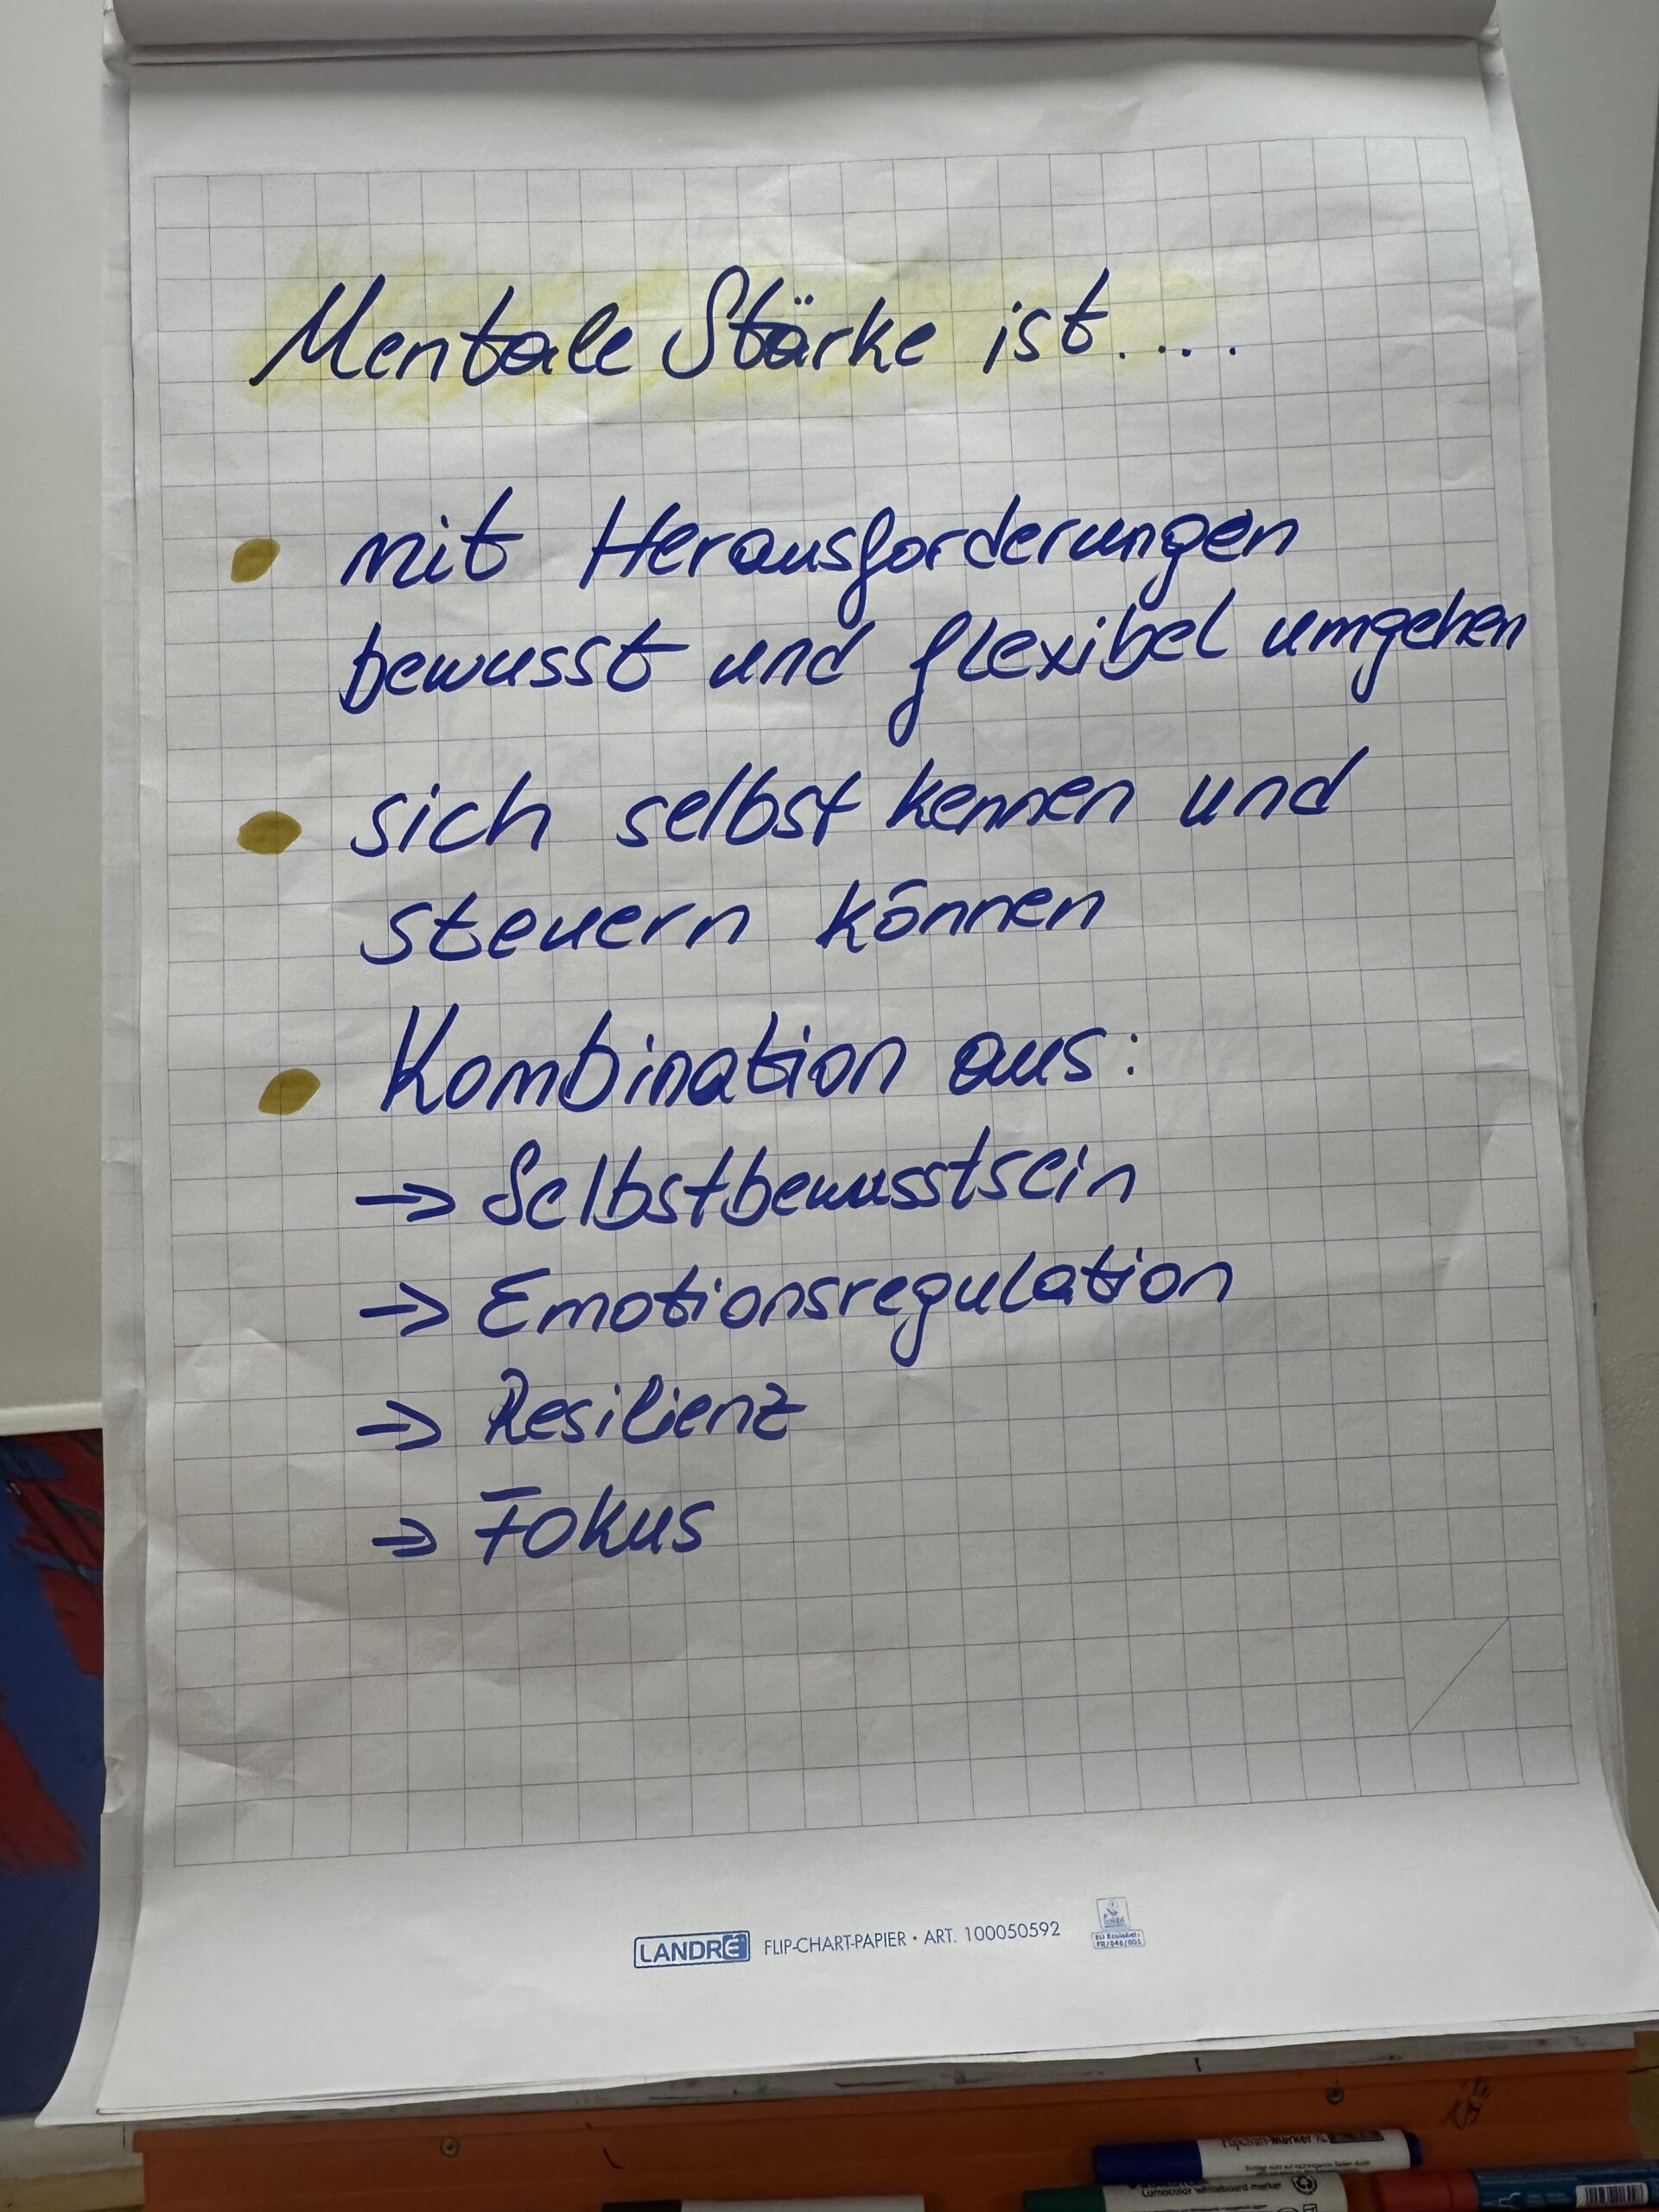 Mentale Stärke ist....
• mit Herausforderungen
bewusst und flexibel umgehen
• sich selbst kennen und
steuern können
• Kombination aus:
→ Selbstbewusstsein
→ Emotionsregulation
→ Resilienz
→ Fokus
LANDRÉ FLIP-CHART-PAPIER • ART. 100050592
EU Ecolabel:
FR/046/001
Lumocolor whiteboard marker